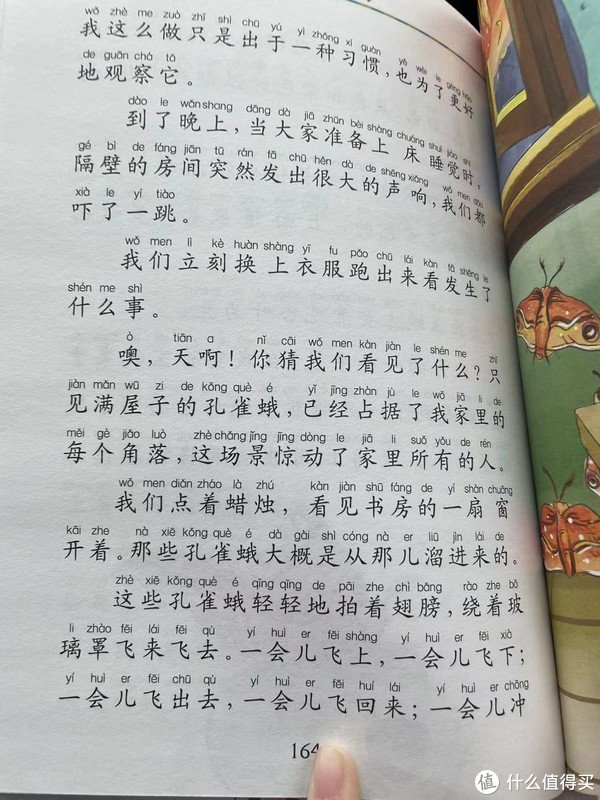 wǒ zhè me zuò zhǐ shì chū yú yì zhǒng xí guàn yě wèi le gèng hǎo
我这么做只是出于一种习惯，也为了更好
de guān chá tā
地观察它。
dào le wǎnshang dāng dà jiā zhǔn bèi shàng chuáng shuì jiào shí
到了晚上，当大家准备上床睡觉时，
gé bì de fáng jiān tū rán fā chū hěn dà de shēng xiǎng wǒ men dōu
隔壁的房间突然发出很大的声响，我们都
xià le yí tiào
吓了一跳。
wǒ men lì kè huàn shàng yī fu pǎo chū lái kàn fā shēng le
我们立刻换上衣服跑出来看发生了
shén me shì
什么事。
ò tiān a nǐ cāi wǒ men kàn jiàn le shén me zhǐ
噢，天啊！你猜我们看见了什么？只
jiàn mǎn wū zi de kǒng què é yǐ jīng zhàn jù le wǒ jiā li de
见满屋子的孔雀蛾，已经占据了我家里的
měi gè jiǎo luò zhè chǎng jǐng jīng dòng le jiā li suǒ yǒu de rén
每个角落，这场景惊动了家里所有的人。
wǒ men diǎn zháo là zhú kàn jiàn shū fáng de yí shàn chuāng
我们点着蜡烛，看见书房的一扇窗
kāi zhe nà xiē kǒng què é dà gài shì cóng nà er liū jìn lái de
开着。那些孔雀蛾大概是从那儿溜进来的。
zhè xiē kǒng què é qīng qīng de pāi zhe chì bǎng rào zhe bō
这些孔雀蛾轻轻地拍着翅膀，绕着玻
li zhào fēi lái fēi qù yí huì er fēi shàng yí huì er fēi xià
璃罩飞来飞去。一会儿飞上，一会儿飞下；
yí huì er fēi chū qù yí huì er fēi huí lái yí huì er chōng
一会儿飞出去，一会儿飞回来；一会儿冲
164
值 什么值得买